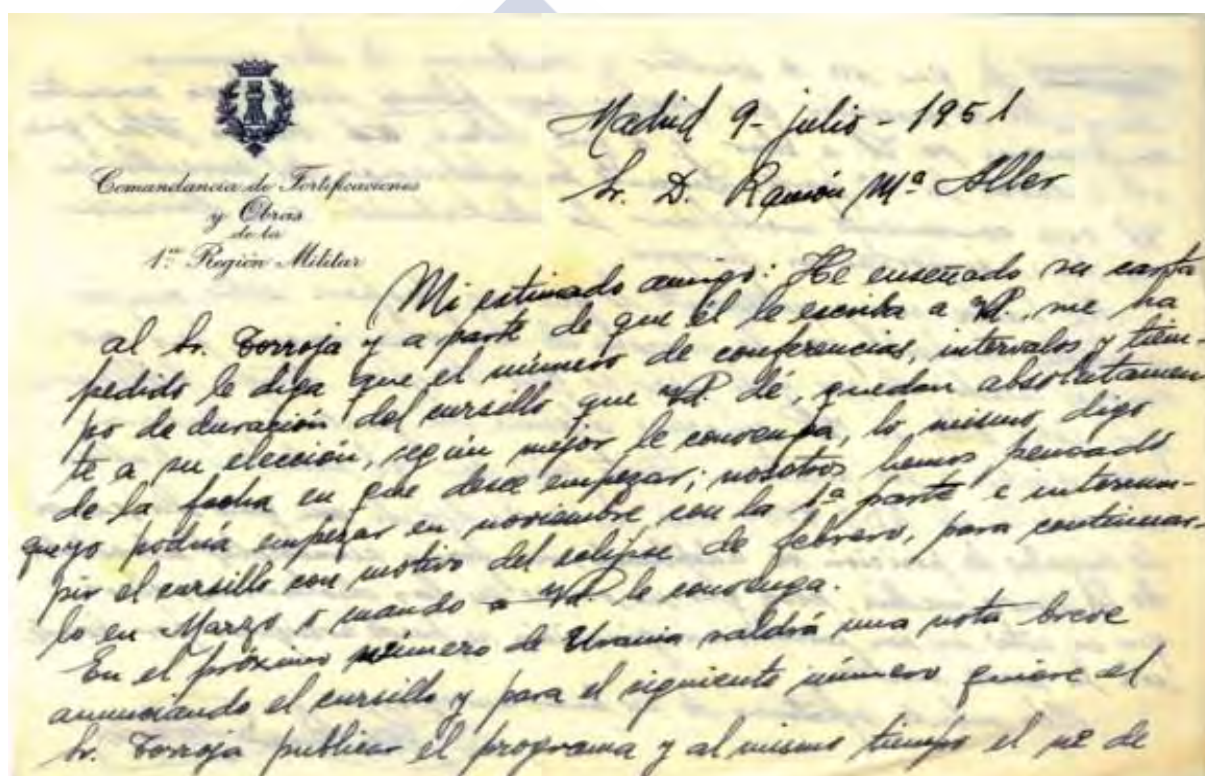 Comandancia de Fortificaciones
y Obras
de la
1ª Región Militar
Madrid 9 - julio - 1951
Sr. D. Ramón Mª Aller
Mi estimado amigo: He enseñado su carta
al Sr. Torroja y a parte de que él le escriba a Vd., me ha
pedido le diga que el número de conferencias, intervalos y tiem-
po de duración del cursillo que Vd. dé, quedan absolutamen
te a su elección, según mejor le convenga, lo mismo digo
de la fecha en que desee empezar; nosotros hemos pensado
que yo podría empezar en noviembre con la 1ª parte e interrum-
pir el cursillo con motivo del eclipse de febrero, para continuar-
lo en Marzo o cuando a Vd. le convenga.
En el próximo número de Urania saldrá una nota breve
anunciando el cursillo y para el siguiente número quiere el
Sr. Torroja publicar el programa y al mismo tiempo el nº de